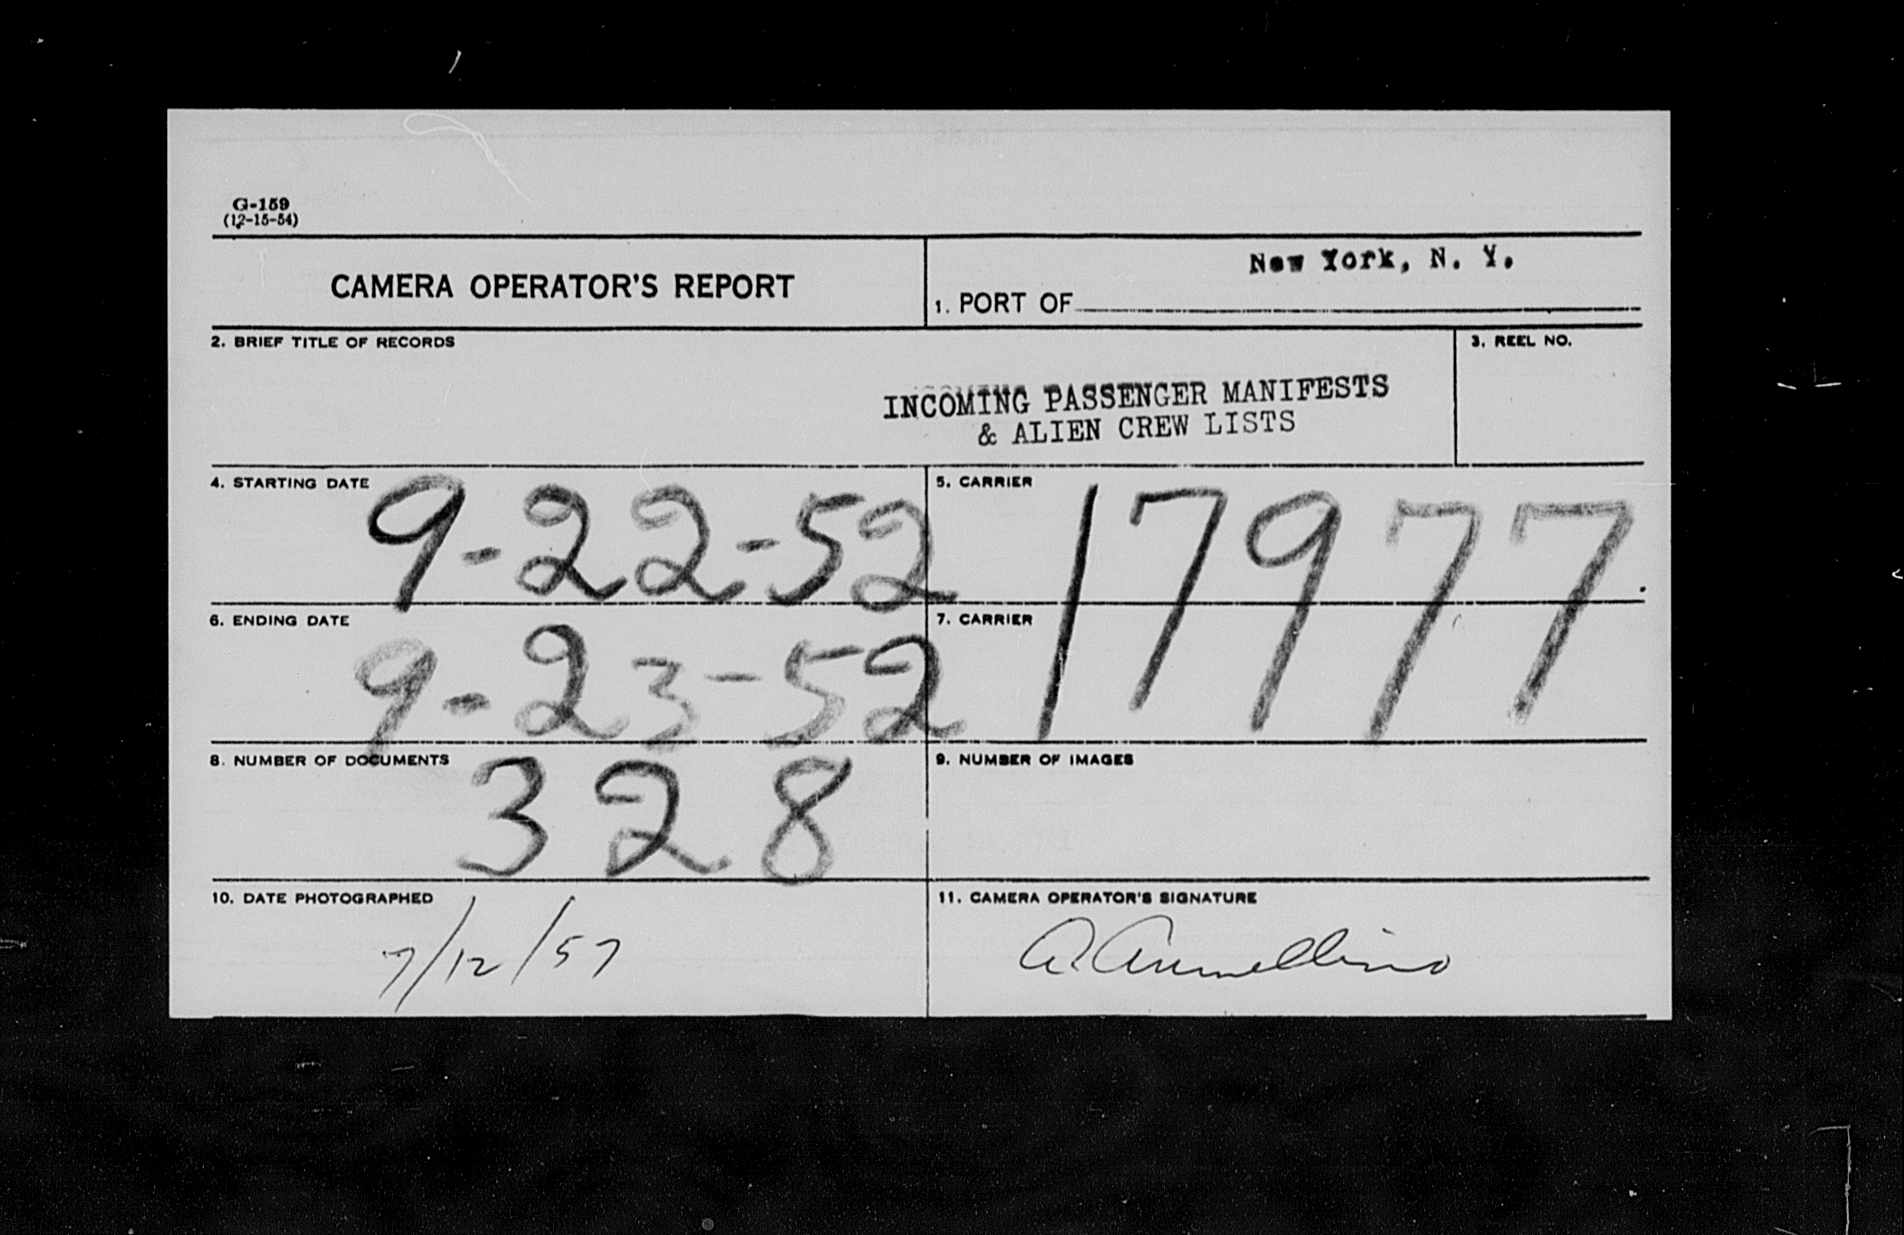 G-159
(12-15-54)
CAMERA OPERATOR'S REPORT
New York, N. Y.
1. PORT OF
2. BRIEF TITLE OF RECORDS
3. REEL NO.
INCOMING PASSENGER MANIFESTS
& ALIEN CREW LISTS
4. STARTING DATE
9-22-52
5. CARRIER
17977
6. ENDING DATE
9-23-52
7. CARRIER
8. NUMBER OF DOCUMENTS
328
9. NUMBER OF IMAGES
10. DATE PHOTOGRAPHED
7/12/57
11. CAMERA OPERATOR'S SIGNATURE
A.